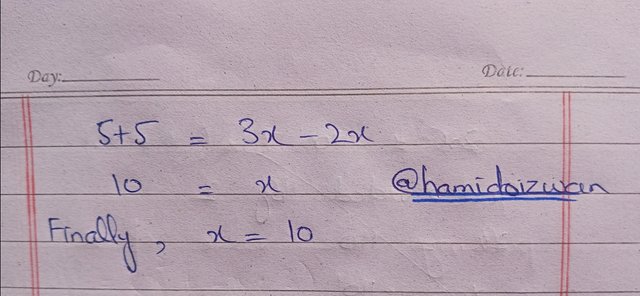 Day: Date:
5+5 = 3x - 2x
10 = x @hamidrizwan
Finally, x = 10